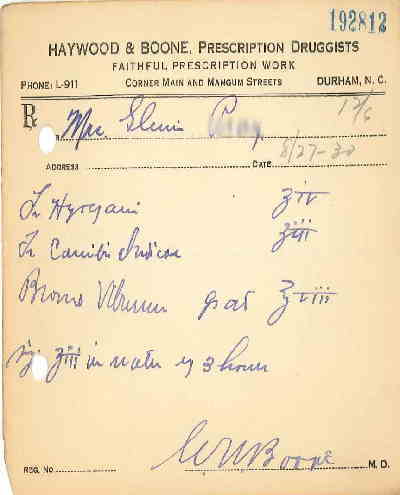 192812
HAYWOOD & BOONE, PRESCRIPTION DRUGGISTS
FAITHFUL PRESCRIPTION WORK
PHONE: L-911 CORNER MAIN AND MANGUM STREETS DURHAM, N. C.
℞ Mrs. Glenn
ADDRESS DATE 8/27-30
Tr Hyoscyami ʒiv
Tr Cannabis Indicae ʒiii
Bromo Viburnum q s ad ℥viii
Sig. ʒiii in water ev 3 hours
Boone M. D.
REG. NO.